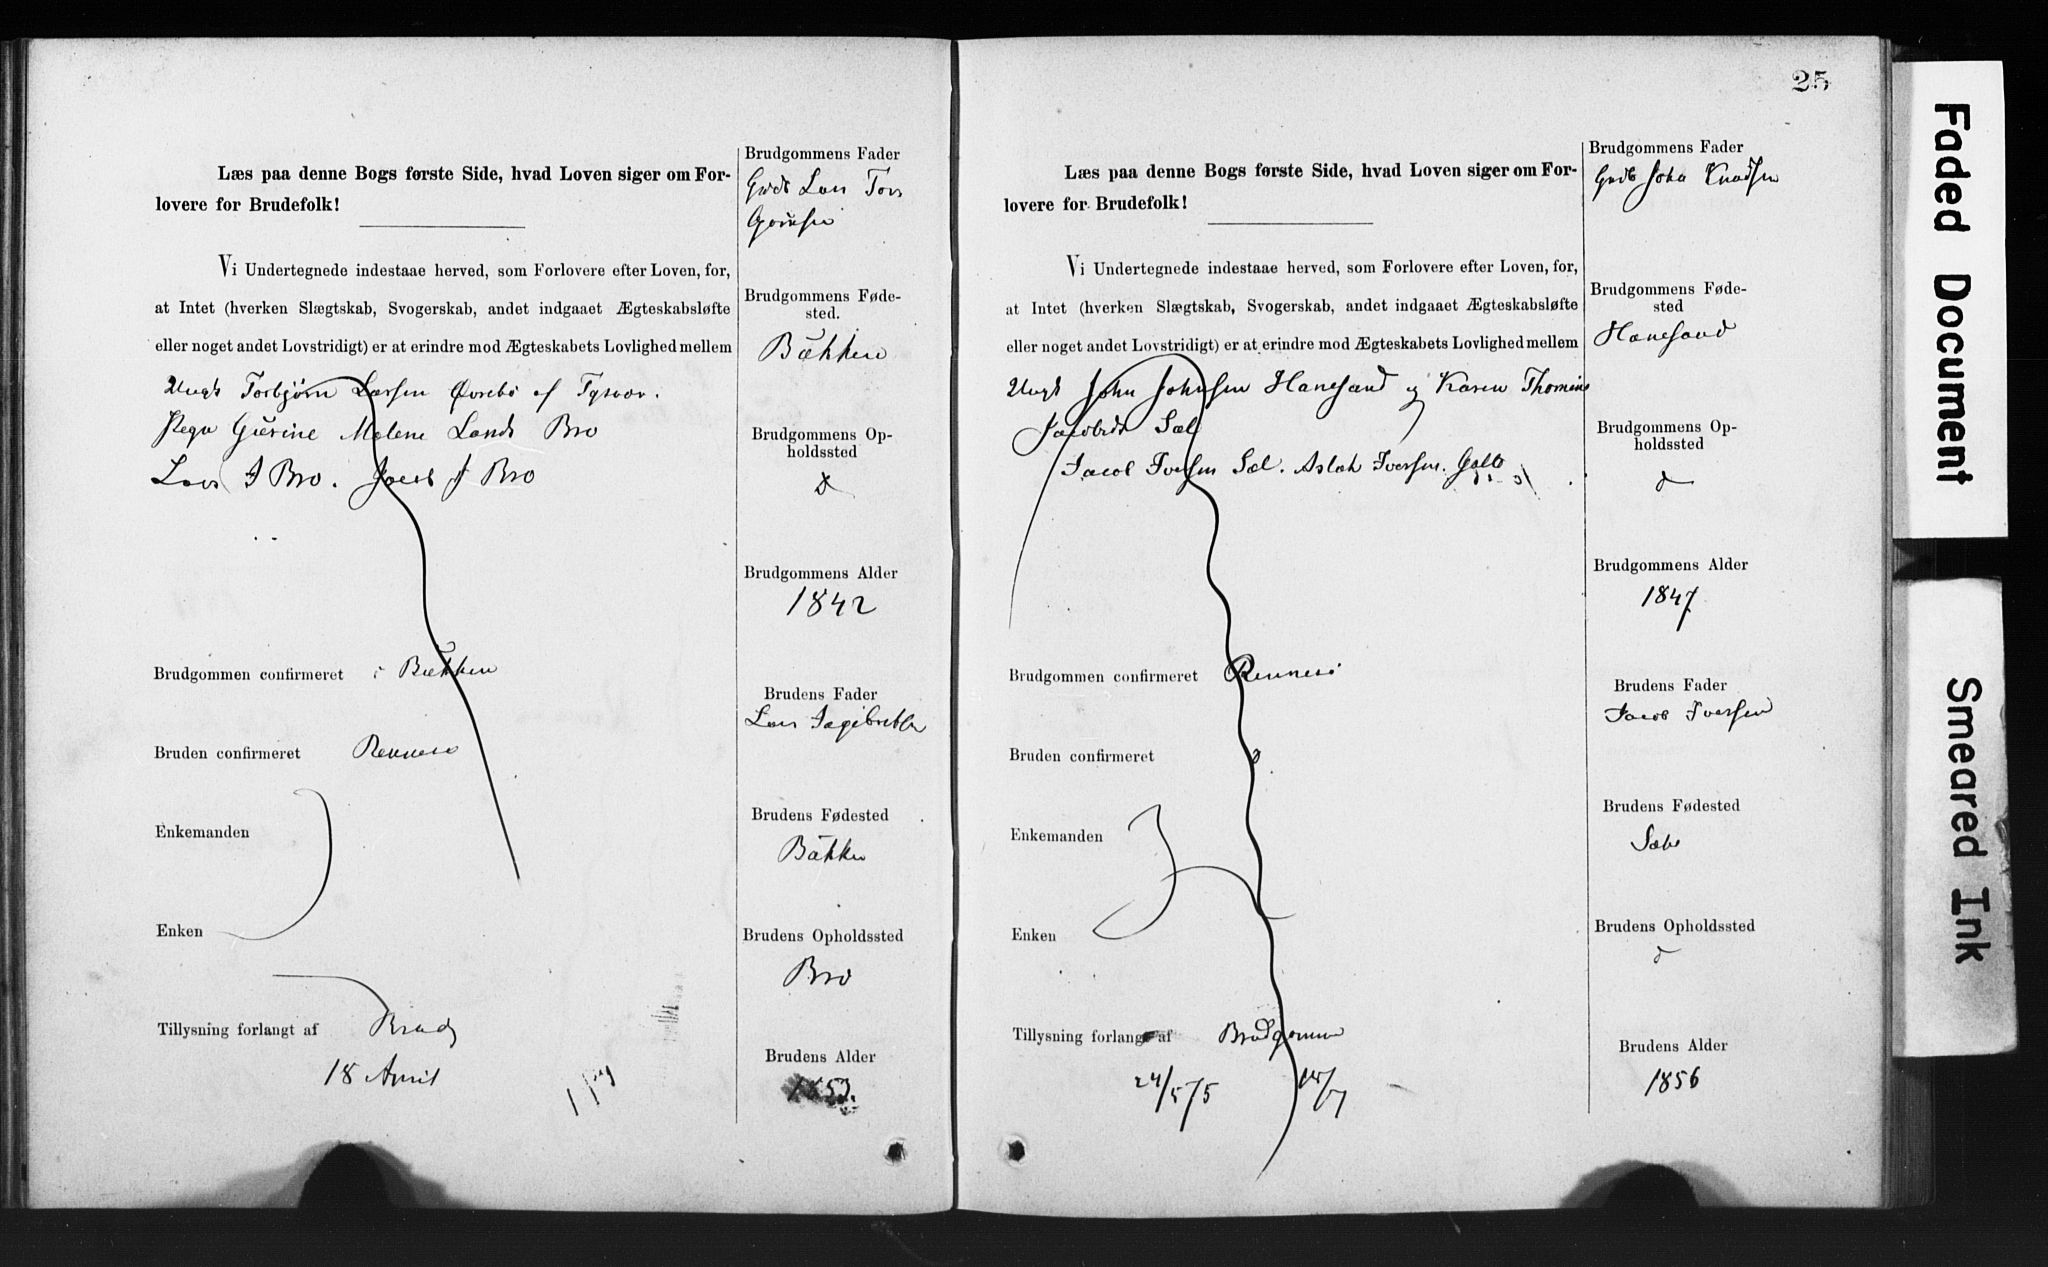 Læs paa denne Bogs første Side, hvad Loven siger om For-
lovere for Brudefolk!
Vi Undertegnede indestaae herved, som Forlovere efter Loven, for,
at Intet (hverken Slægtskab, Svogerskab, andet indgaaet Ægteskabsløfte
eller noget andet Lovstridigt) er at erindre mod Ægteskabets Lovlighed mellem
Ungk Torbjørn Larsen Øvrebø af Tysvær.
Pega Gurine Malene Lards Bro
Lars I Bro. Jacob J Bro
Brudgommen confirmeret i Bækken
Bruden confirmeret Rennesø
Enkemanden
Enken
Tillysning forlangt af Brud
18 April
Brudgommens Fader
Gmd Lars
Brudgommens Føde-
sted.
Bækken
Brudgommens Op-
holdssted
d
Brudgommens Alder
1842
Brudens Fader
Lars Ingebretsen
Brudens Fødested
Bække
Brudens Opholdssted
Bro
Brudens Alder
1853.
25
Læs paa denne Bogs første Side, hvad Loven siger om For-
lovere for Brudefolk!
Vi Undertegnede indestaae herved, som Forlovere efter Loven, for,
at Intet (hverken Slægtskab, Svogerskab, andet indgaaet Ægteskabsløfte
eller noget andet Lovstridigt) er at erindre mod Ægteskabets Lovlighed mellem
Ungk John Johnsen Hanesand og Karen Thomine
Jacobsd Sæl
Jacob Iversen Sæl. Aslak Iversen. Galta
Brudgommen confirmeret Rennesø
Bruden confirmeret d
Enkemanden
Enken
Tillysning forlangt af Brudgomm
24/5 75
Brudgommens Fader
Gmd John Knudsen
Brudgommens Føde-
sted
Hanesand
Brudgommens Op-
holdssted
d
Brudgommens Alder
1847
Brudens Fader
Jacob Iversen
Brudens Fødested
Brudens Opholdssted
d
Brudens Alder
1856
Faded Document
Smeared Ink